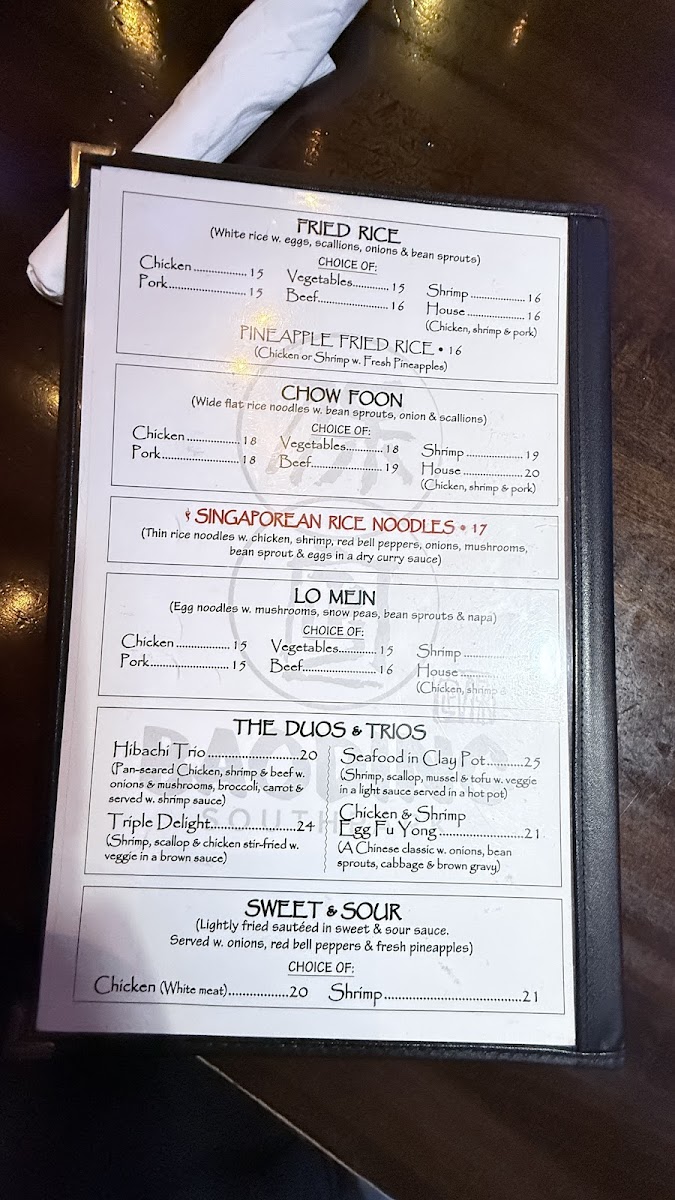 FRIED RICE
(White rice w. eggs, scallions, onions & bean sprouts)
CHOICE OF:
Chicken.................... 15 Vegetables............ 15 Shrimp .................... 16
Pork............................ 15 Beef......................... 16 House ..................... 16
(Chicken, shrimp & pork)
PINEAPPLE FRIED RICE • 16
(Chicken or Shrimp w. Fresh Pineapples)
CHOW FOON
(Wide flat rice noodles w. bean sprouts, onion & scallions)
CHOICE OF:
Chicken.................... 18 Vegetables............ 18 Shrimp .................... 19
Pork............................ 18 Beef......................... 19 House ..................... 20
(Chicken, shrimp & pork)
SINGAPOREAN RICE NOODLES • 17
(Thin rice noodles w. chicken, shrimp, red bell peppers, onions, mushrooms,
bean sprout & eggs in a dry curry sauce)
LO MEIN
(Egg noodles w. mushrooms, snow peas, bean sprouts & napa)
CHOICE OF:
Chicken.................... 15 Vegetables............ 15 Shrimp
Pork............................ 15 Beef......................... 16 House
(Chicken, shrimp &
THE DUOS & TRIOS
Hibachi Trio............................20
(Pan-seared Chicken, shrimp & beef w.
onions & mushrooms, broccoli, carrot &
served w. shrimp sauce)
Triple Delight.........................24
(Shrimp, scallop & chicken stir-fried w.
veggie in a brown sauce)
Seafood in Clay Pot...........25
(Shrimp, scallop, mussel & tofu w. veggie
in a light sauce served in a hot pot)
Chicken & Shrimp
Egg Fu Yong.........................21
(A Chinese classic w. onions, bean
sprouts, cabbage & brown gravy)
SOUTH
SWEET & SOUR
(Lightly fried sautéed in sweet & sour sauce.
Served w. onions, red bell peppers & fresh pineapples)
CHOICE OF:
Chicken (White meat)..................20 Shrimp.........................................21